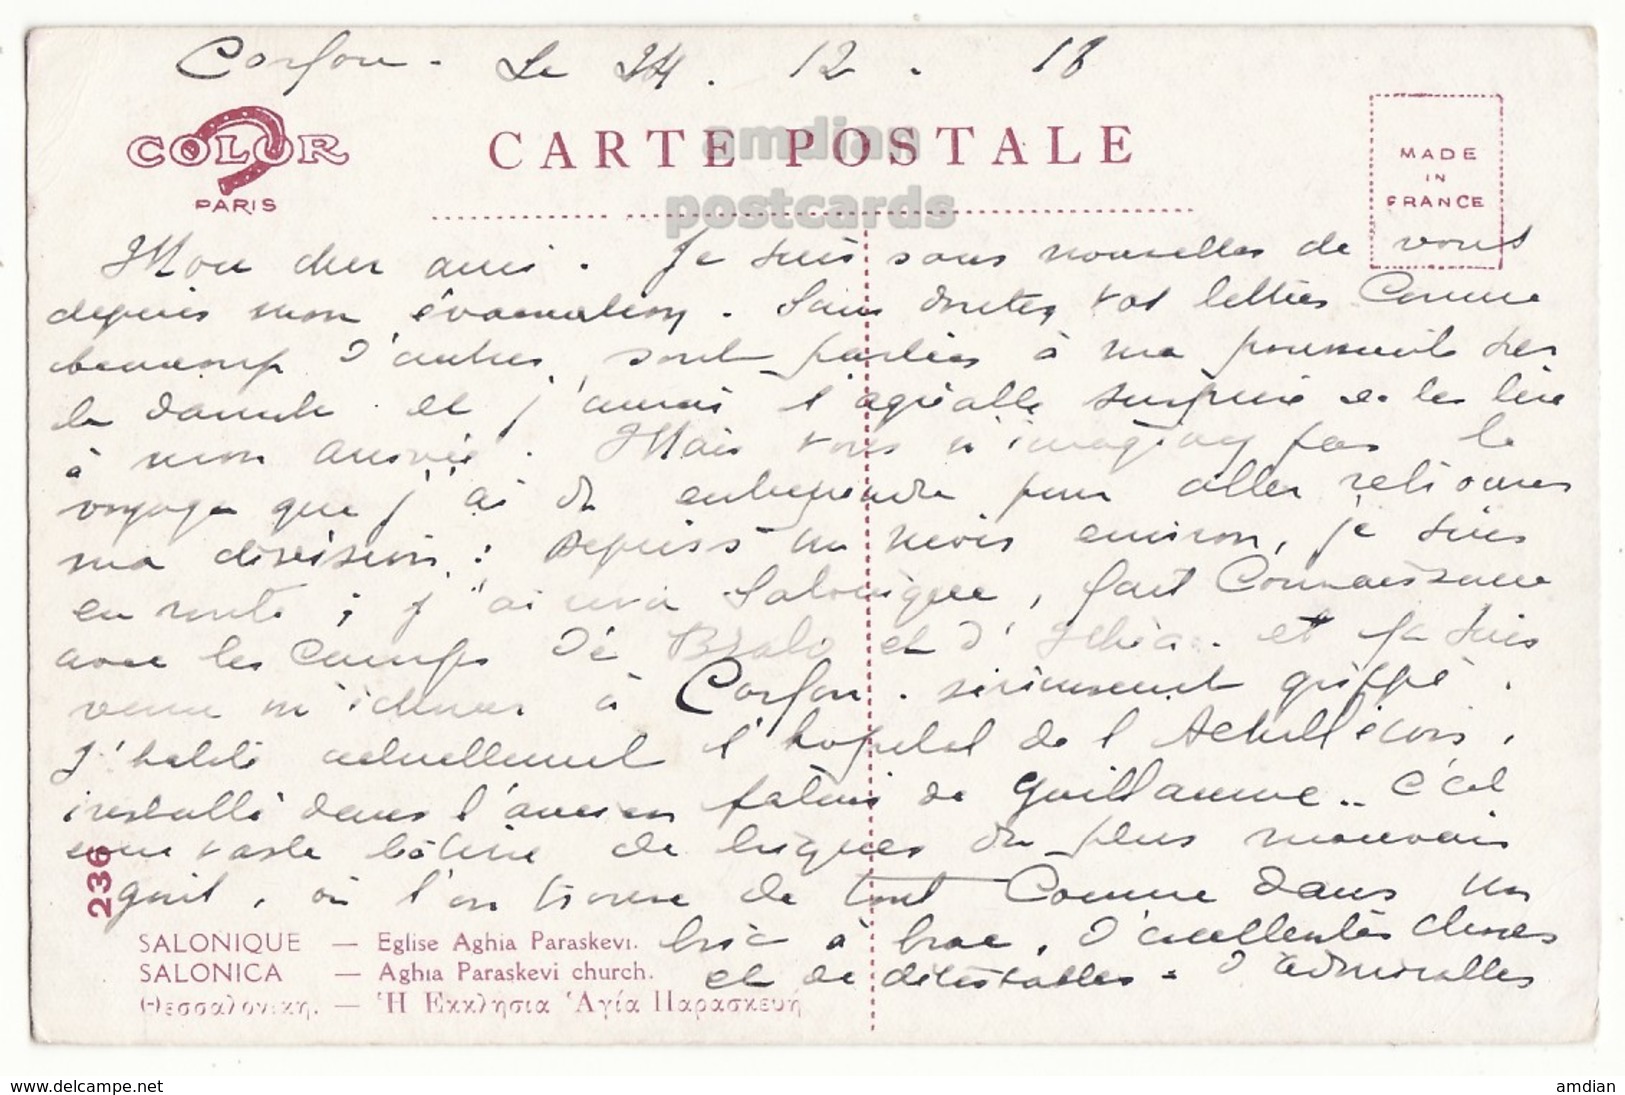 Corfou - Le 24 . 12 . 18
COLOR
PARIS
CARTE POSTALE
amdian
postcards
MADE
IN
FRANCE
Mon cher ami . Je suis sans nouvelles de vous
depuis mon évacuation . Sans doutes vos lettres comme
beaucoup d'autres, sont parties à ma poursuite sur
le danube et j'aurai l'agréable surprise de les lire
à mon arrivée . Mais vous n'imaginez pas le
voyage que j'ai du entreprendre pour aller retrouver
ma division : Depuis un mois environ, je suis
en route ; j'ai revu Salonique, fait connaissance
avec les camps de Bralo et d'Ithéa . et je suis
venu m'échouer à Corfou . sérieusement grippé .
J'habite actuellement l'hopital de l'Achilléion ,
installé dans l'ancien palais de Guillaume .. C'est
une vaste bâtisse de briques du plus mauvais
gout , où l'on trouve de tout comme dans un
bric à brac , d'excellentes choses
et de détestables - d'admirables
236
SALONIQUE — Eglise Aghia Paraskevi.
SALONICA — Aghia Paraskevi church.
Θεσσαλονίκη. — Ἡ Εκκλησια Ἁγία Παρασκευή
www.delcampe.net
amdian